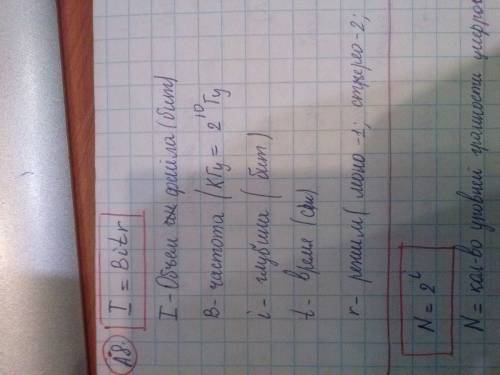 А8. I = Bitr
I - Объем файла (бит)
B - частота (КГц = 2¹⁰ Гц
i - глубина (бит)
t - время (сек)
r - режим (моно - 1; стерео - 2;
N = 2ⁱ
N = кол-во уровней громкости цифров